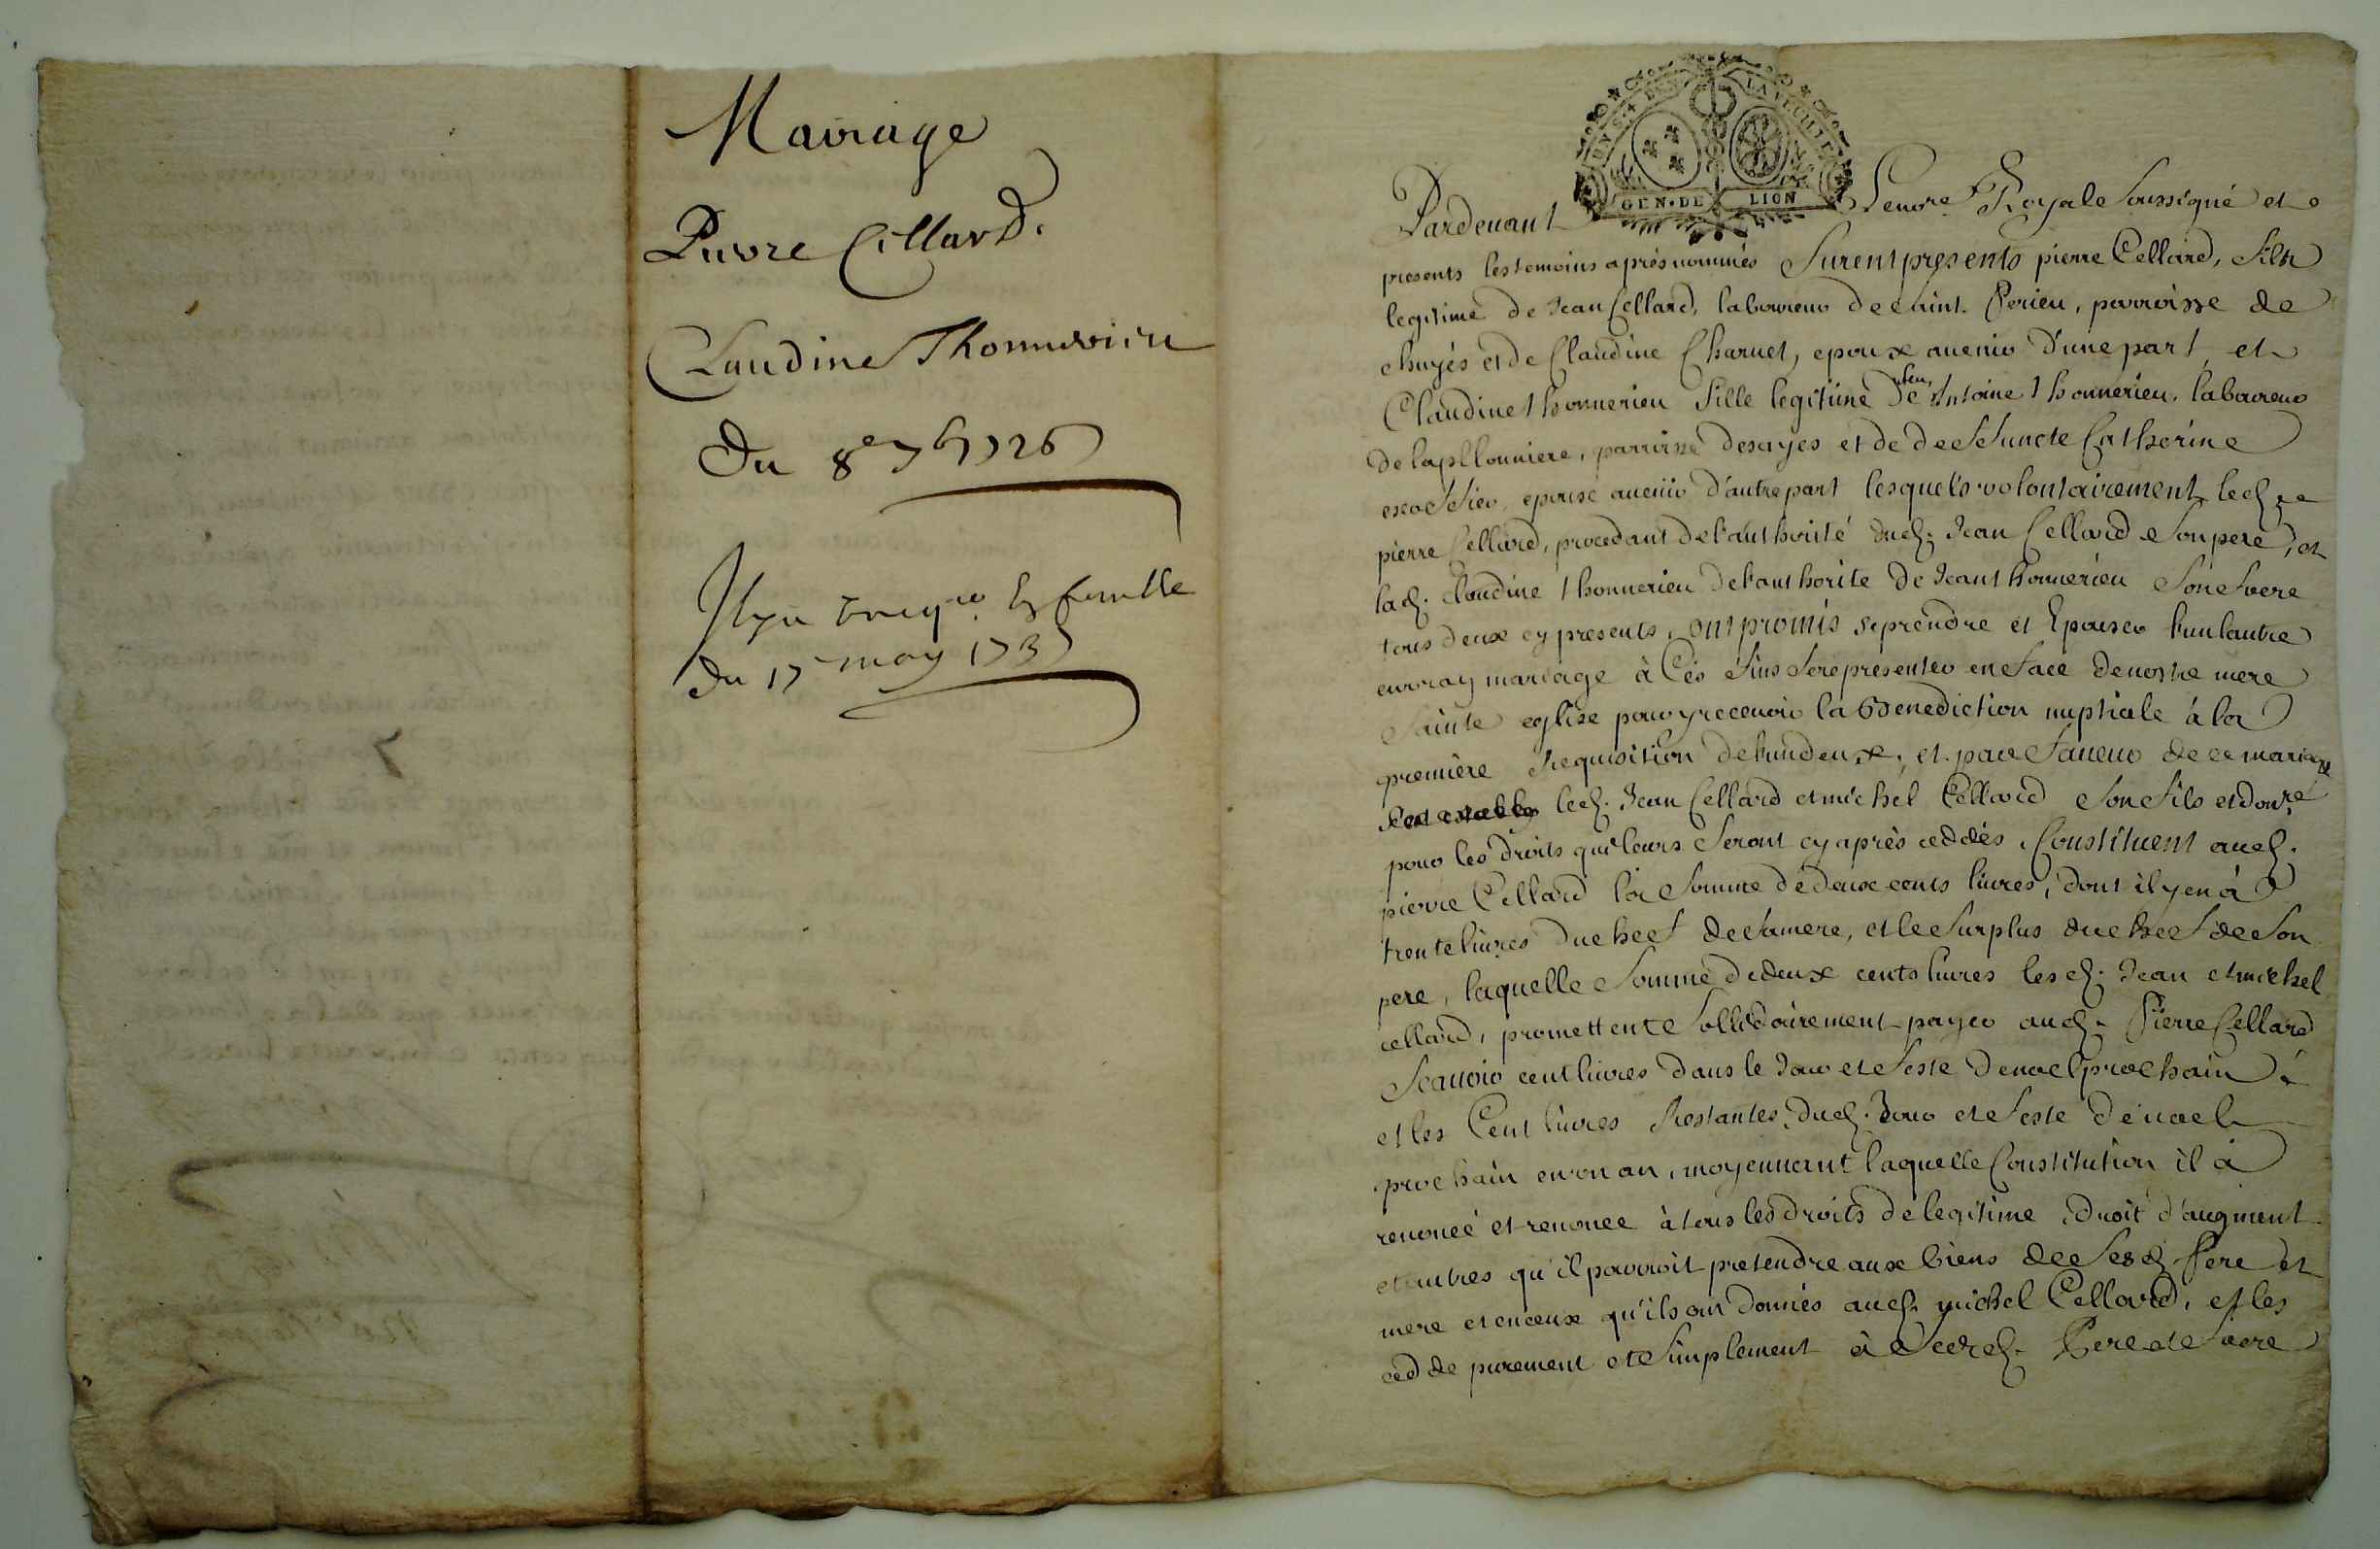 Mariage
Pierre Cellard.
Claudine Thonnerieu
Du 8e 7bre 1726
Il y a
du 17 may 1735
GEN·DE LION
Pardevant le nore Royale soussigné et
presents les temoins aprés nommés furent presents pierre Cellard, fils
legitime de Jean Cellard, laboureur de saint Perieu, parroisse de
chuyés et de Claudine Charuet, epoux avenir d'une part, et
Claudine thonnerieu fille legitime de feu Antoine thonnerieu, laboureur
de la pllonniere, parroisse desayes et de deffuncte Catherine
epouse avenir d'autre part lesquels volontairement led.
pierre Cellard, procedant de l'authorité dud. Jean Cellard son pere, et
lad. Claudine thonnerieu de l'authorite de Jean thonnerieu son frere
tous deux cy presents, ont promis se prendre et Epouser l'un l'autre
en vray mariage à Ces fins se representer en face de nostre mere
sainte eglise pour y recevoir la Benediction nuptiale à la
premiere Requisition de l'un deux, et par faveur de ce mariage
led. Jean Cellard et michel Cellard son fils et donré
pour les droits qui leurs seront cy aprés ceddés, Constituent aud.
pierre Cellard la somme de deux cents livres, dont il y en à
trente livres du chef de sa mere, et le surplus du chef de son
pere, laquelle somme de deux cents livres les d. Jean et michel
cellard, promettent sollidairement payer aud. Pierre Cellard
scavoir cent livres dans le Jour et feste de noel prochain
et les Cent livres Restantes dud. Jour et feste de noel
prochain en un an, moyennant laquelle Constitution il à
renoncé et renonce à tous les droits de legitime, droit d'augment
et autres qu'il pourroit pretendre aux biens de sesd. Pere et
mere et en ceux qu'ils ont donnés aud. michel Cellard, et les
cedde purement et simplement à sesd. Pere et frere